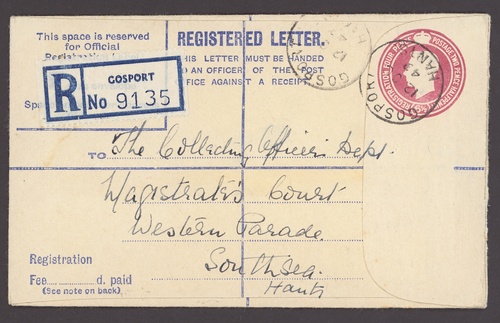 This space is reserved
for Official
REGISTERED LETTER.
THIS LETTER MUST BE HANDED
TO AN OFFICER OF THE POST
OFFICE AGAINST A RECEIPT
R
GOSPORT
No 9135
GOSPORT
HANTS
GOSPORT
HANTS
POSTAGE TWO PENCE HALFPENNY
REGISTRATION FOUR PENCE
TO The Collecting Officer Dept.
Magistrate's Court
Western Parade
Southsea
Hants
Registration
Fee d. paid
(See note on back)